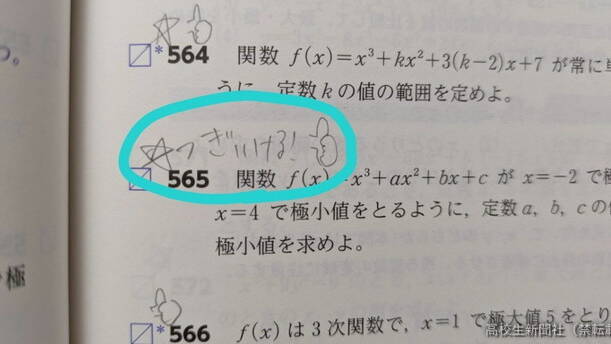 つ。
*564 関数 f(x)=x³+kx²+3(k-2)x+7 が常に単
うに、定数kの値の範囲を定めよ。
☆つぎいける!
565 関数 f(x)=x³+ax²+bx+c が x=-2 で極
x=4 で極小値をとるように、定数 a, b, c の
極小値を求めよ。
極
572
*566 f(x) は3次関数で、x=1 で極大値5をとり
高校生新聞社(禁転載)